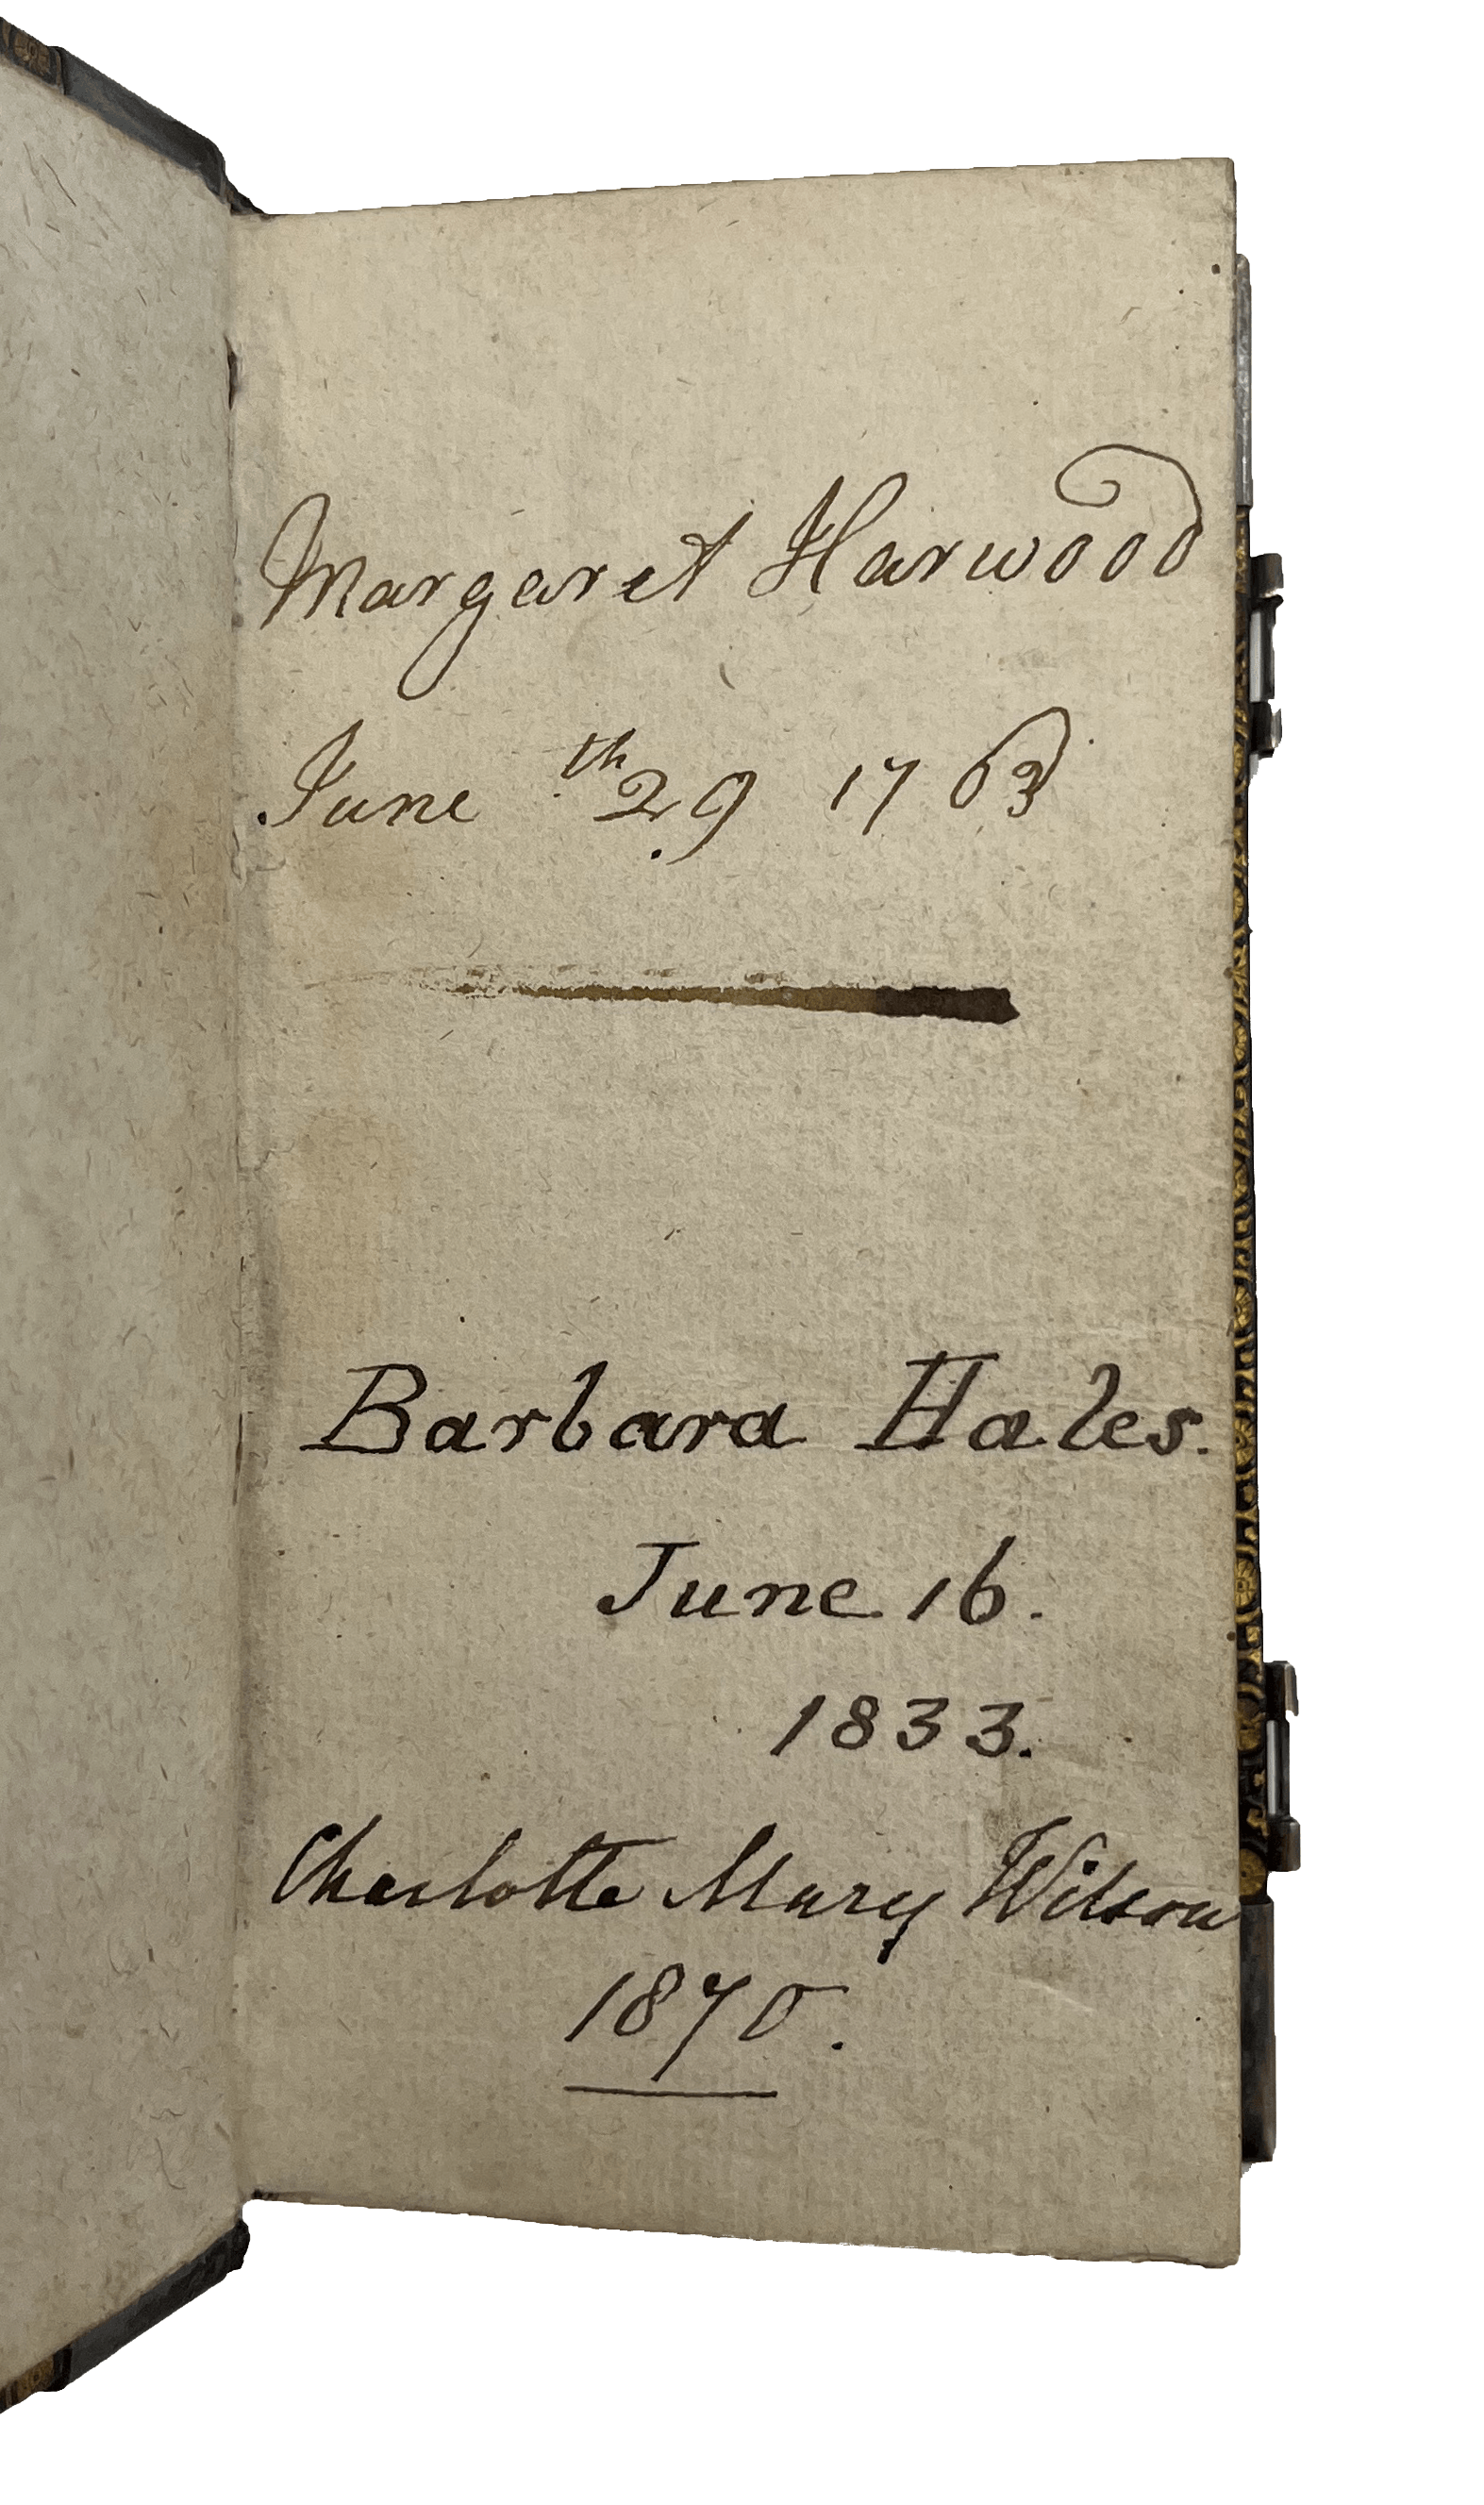 Margaret Harwood
June th 29 1763
Barbara Hales.
June 16.
1833.
Charlotte Mary Wilson
1870.